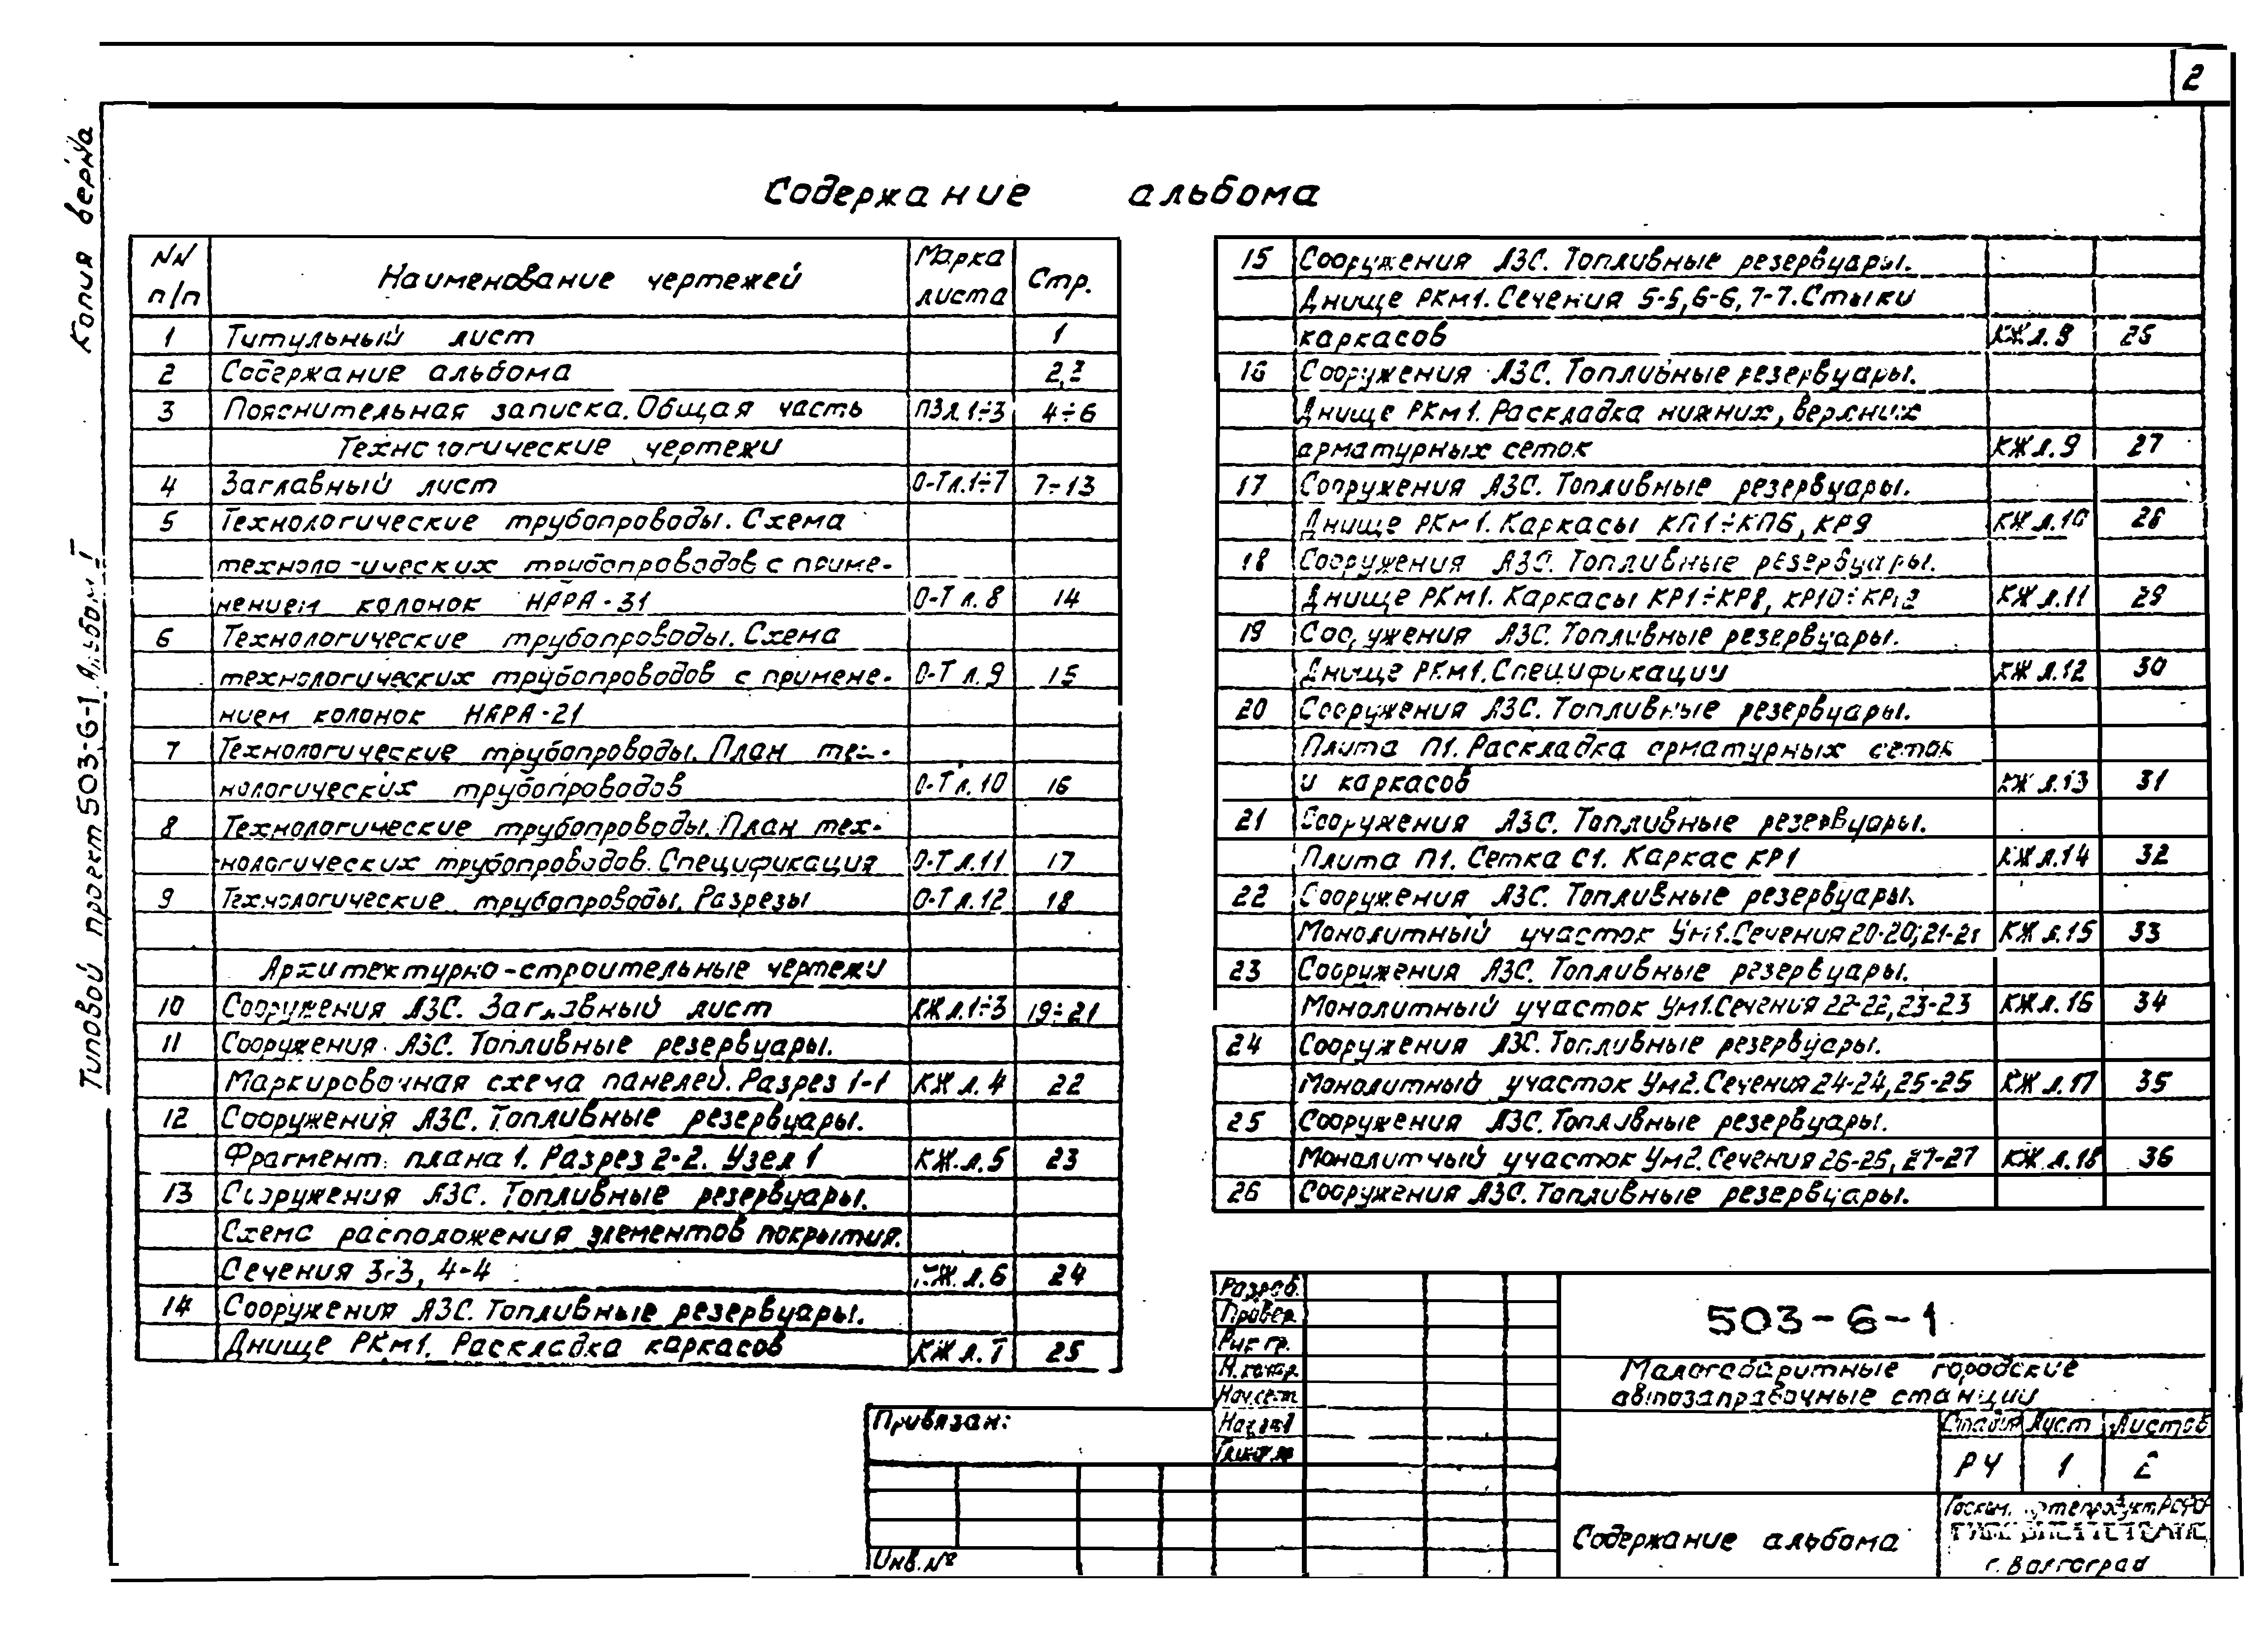 2
Копия верна
Типовой проект 503-6-1 Альбом I
Содержание альбома
NN п/п Наименование чертежей Марка листа Стр.
1 Титульный лист 1
2 Содержание альбома 2,3
3 Пояснительная записка. Общая часть ПЗ л.1÷3 4÷6
Технологические чертежи
4 Заглавный лист О-Т л.1÷7 7÷13
5 Технологические трубопроводы. Схема
технологических трубопроводов с приме-
нением колонок НАРА-31 О-Т л.8 14
6 Технологические трубопроводы. Схема
технологических трубопроводов с примене- О-Т л.9 15
нием колонок НАРА-21
7 Технологические трубопроводы. План тех-
нологических трубопроводов О-Т л.10 16
8 Технологические трубопроводы. План тех-
нологических трубопроводов. Спецификация О-Т л.11 17
9 Технологические трубопроводы. Разрезы О-Т л.12 18
Архитектурно-строительные чертежи
10 Сооружения АЗС. Заглавный лист КЖ л.1÷3 19÷21
11 Сооружения АЗС. Топливные резервуары.
Маркировочная схема панелей. Разрез 1-1 КЖ л.4 22
12 Сооружения АЗС. Топливные резервуары.
Фрагмент плана 1. Разрез 2-2. Узел 1 КЖ.л.5 23
13 Сооружения АЗС. Топливные резервуары.
Схема расположения элементов покрытия.
Сечения 3-3, 4-4 КЖ.л.6 24
14 Сооружения АЗС. Топливные резервуары.
Днище РКм1. Раскладка каркасов КЖ л.7 25
15 Сооружения АЗС. Топливные резервуары.
Днище РКм1. Сечения 5-5, 6-6, 7-7. Стыки
каркасов КЖ л.8
16 Сооружения АЗС. Топливные резервуары.
Днище РКм1. Раскладка нижних, верхних
арматурных сеток КЖ л.9 27
17 Сооружения АЗС. Топливные резервуары.
Днище РКм1. Каркасы КП1÷КП6, КР9 КЖ л.10 28
18 Сооружения АЗС. Топливные резервуары.
Днище РКм1. Каркасы КР1÷КР8, КР10÷КР12 КЖ л.11 29
19 Сооружения АЗС. Топливные резервуары.
Днище РКм1. Спецификации КЖ л.12 30
20 Сооружения АЗС. Топливные резервуары.
Плита П1. Раскладка арматурных сеток
и каркасов КЖ л.13 31
21 Сооружения АЗС. Топливные резервуары.
Плита П1. Сетка С1. Каркас КР1 КЖ л.14 32
22 Сооружения АЗС. Топливные резервуары.
Монолитный участок Ум1. Сечения 20-20; 21-21 КЖ л.15 33
23 Сооружения АЗС. Топливные резервуары.
Монолитный участок Ум1. Сечения 22-22, 23-23 КЖ л.16 34
24 Сооружения АЗС. Топливные резервуары.
Монолитный участок Ум2. Сечения 24-24, 25-25 КЖ л.17 35
25 Сооружения АЗС. Топливные резервуары.
Монолитный участок Ум2. Сечения 26-26, 27-27 КЖ л.18 36
26 Сооружения АЗС. Топливные резервуары.
Разраб.
Провер.
Рук гр.
Н.контр.
Нач.сект
Привязан:
Инв.№
503-6-1
Малогабаритные городские
автозаправочные станции
Стадия Лист Листов
РЧ 1 2
Содержание альбома
г. Волгоград